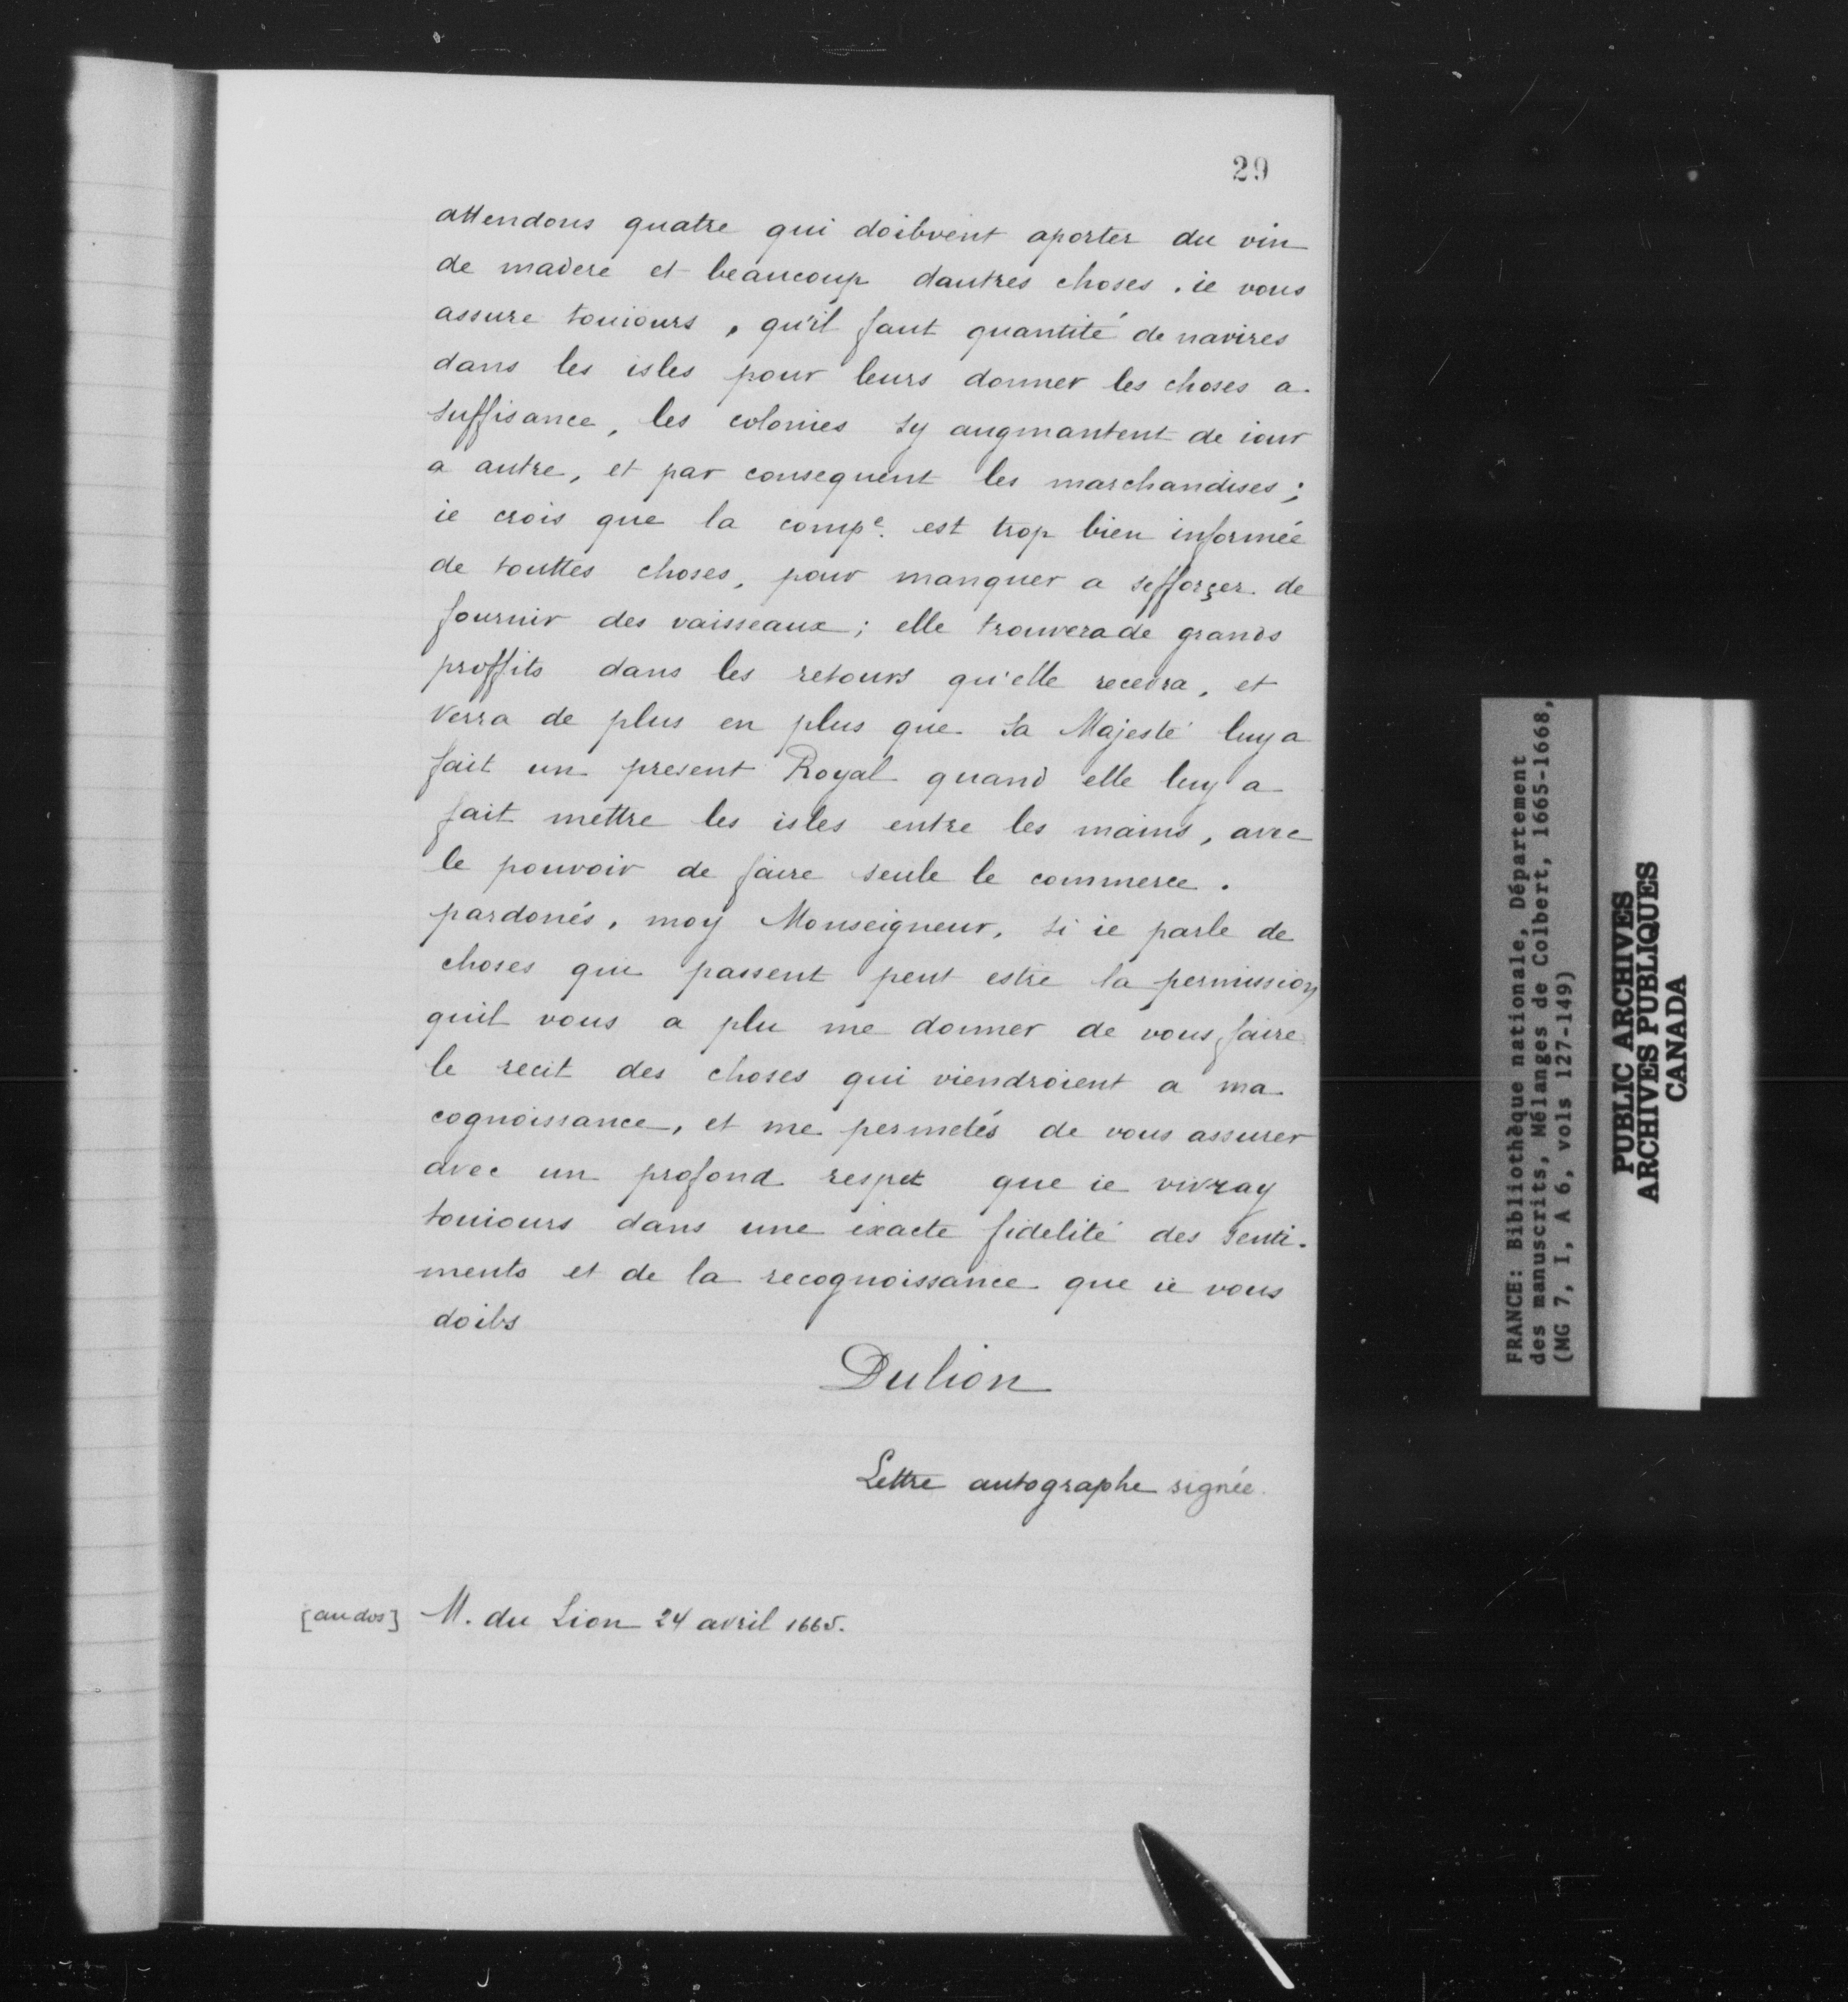 29
attendons quatre qui doibvent aporter du vin
de madere et beaucoup dautres choses . ie vous
assure touiours , qu'il faut quantité de navires
dans les isles pour leurs donner les choses a
suffisance , les colonies sy augmantent de iour
a autre , et par consequent les marchandises ;
ie crois que la compe. est trop bien informée
de touttes choses , pour manquer a sefforçer de
fournir des vaisseaux ; elle trouvera de grands
proffits dans les retours qu'elle recevra , et
verra de plus en plus que sa Majesté luy a
fait un present Royal quand elle luy a
fait mettre les isles entre les mains , avec
le pouvoir de faire seule le commerce .
pardonés , moy Monseigneur , si ie parle de
choses qui passent peut estre la permission
quil vous a plu me donner de vous faire
le recit des choses qui viendroient a ma
cognoissance , et me permetés de vous assurer
avec un profond respet que ie vivray
touiours dans une exacte fidelité des senti-
ments et de la recognoissance que ie vous
doibs
Dulion
Lettre autographe signée .
[au dos] M. du Lion 24 avril 1665.
FRANCE: Bibliothèque nationale, Département
des manuscrits, Mélanges de Colbert, 1665-1668,
(MG 7, I, A 6, vols 127-149)
PUBLIC ARCHIVES
ARCHIVES PUBLIQUES
CANADA